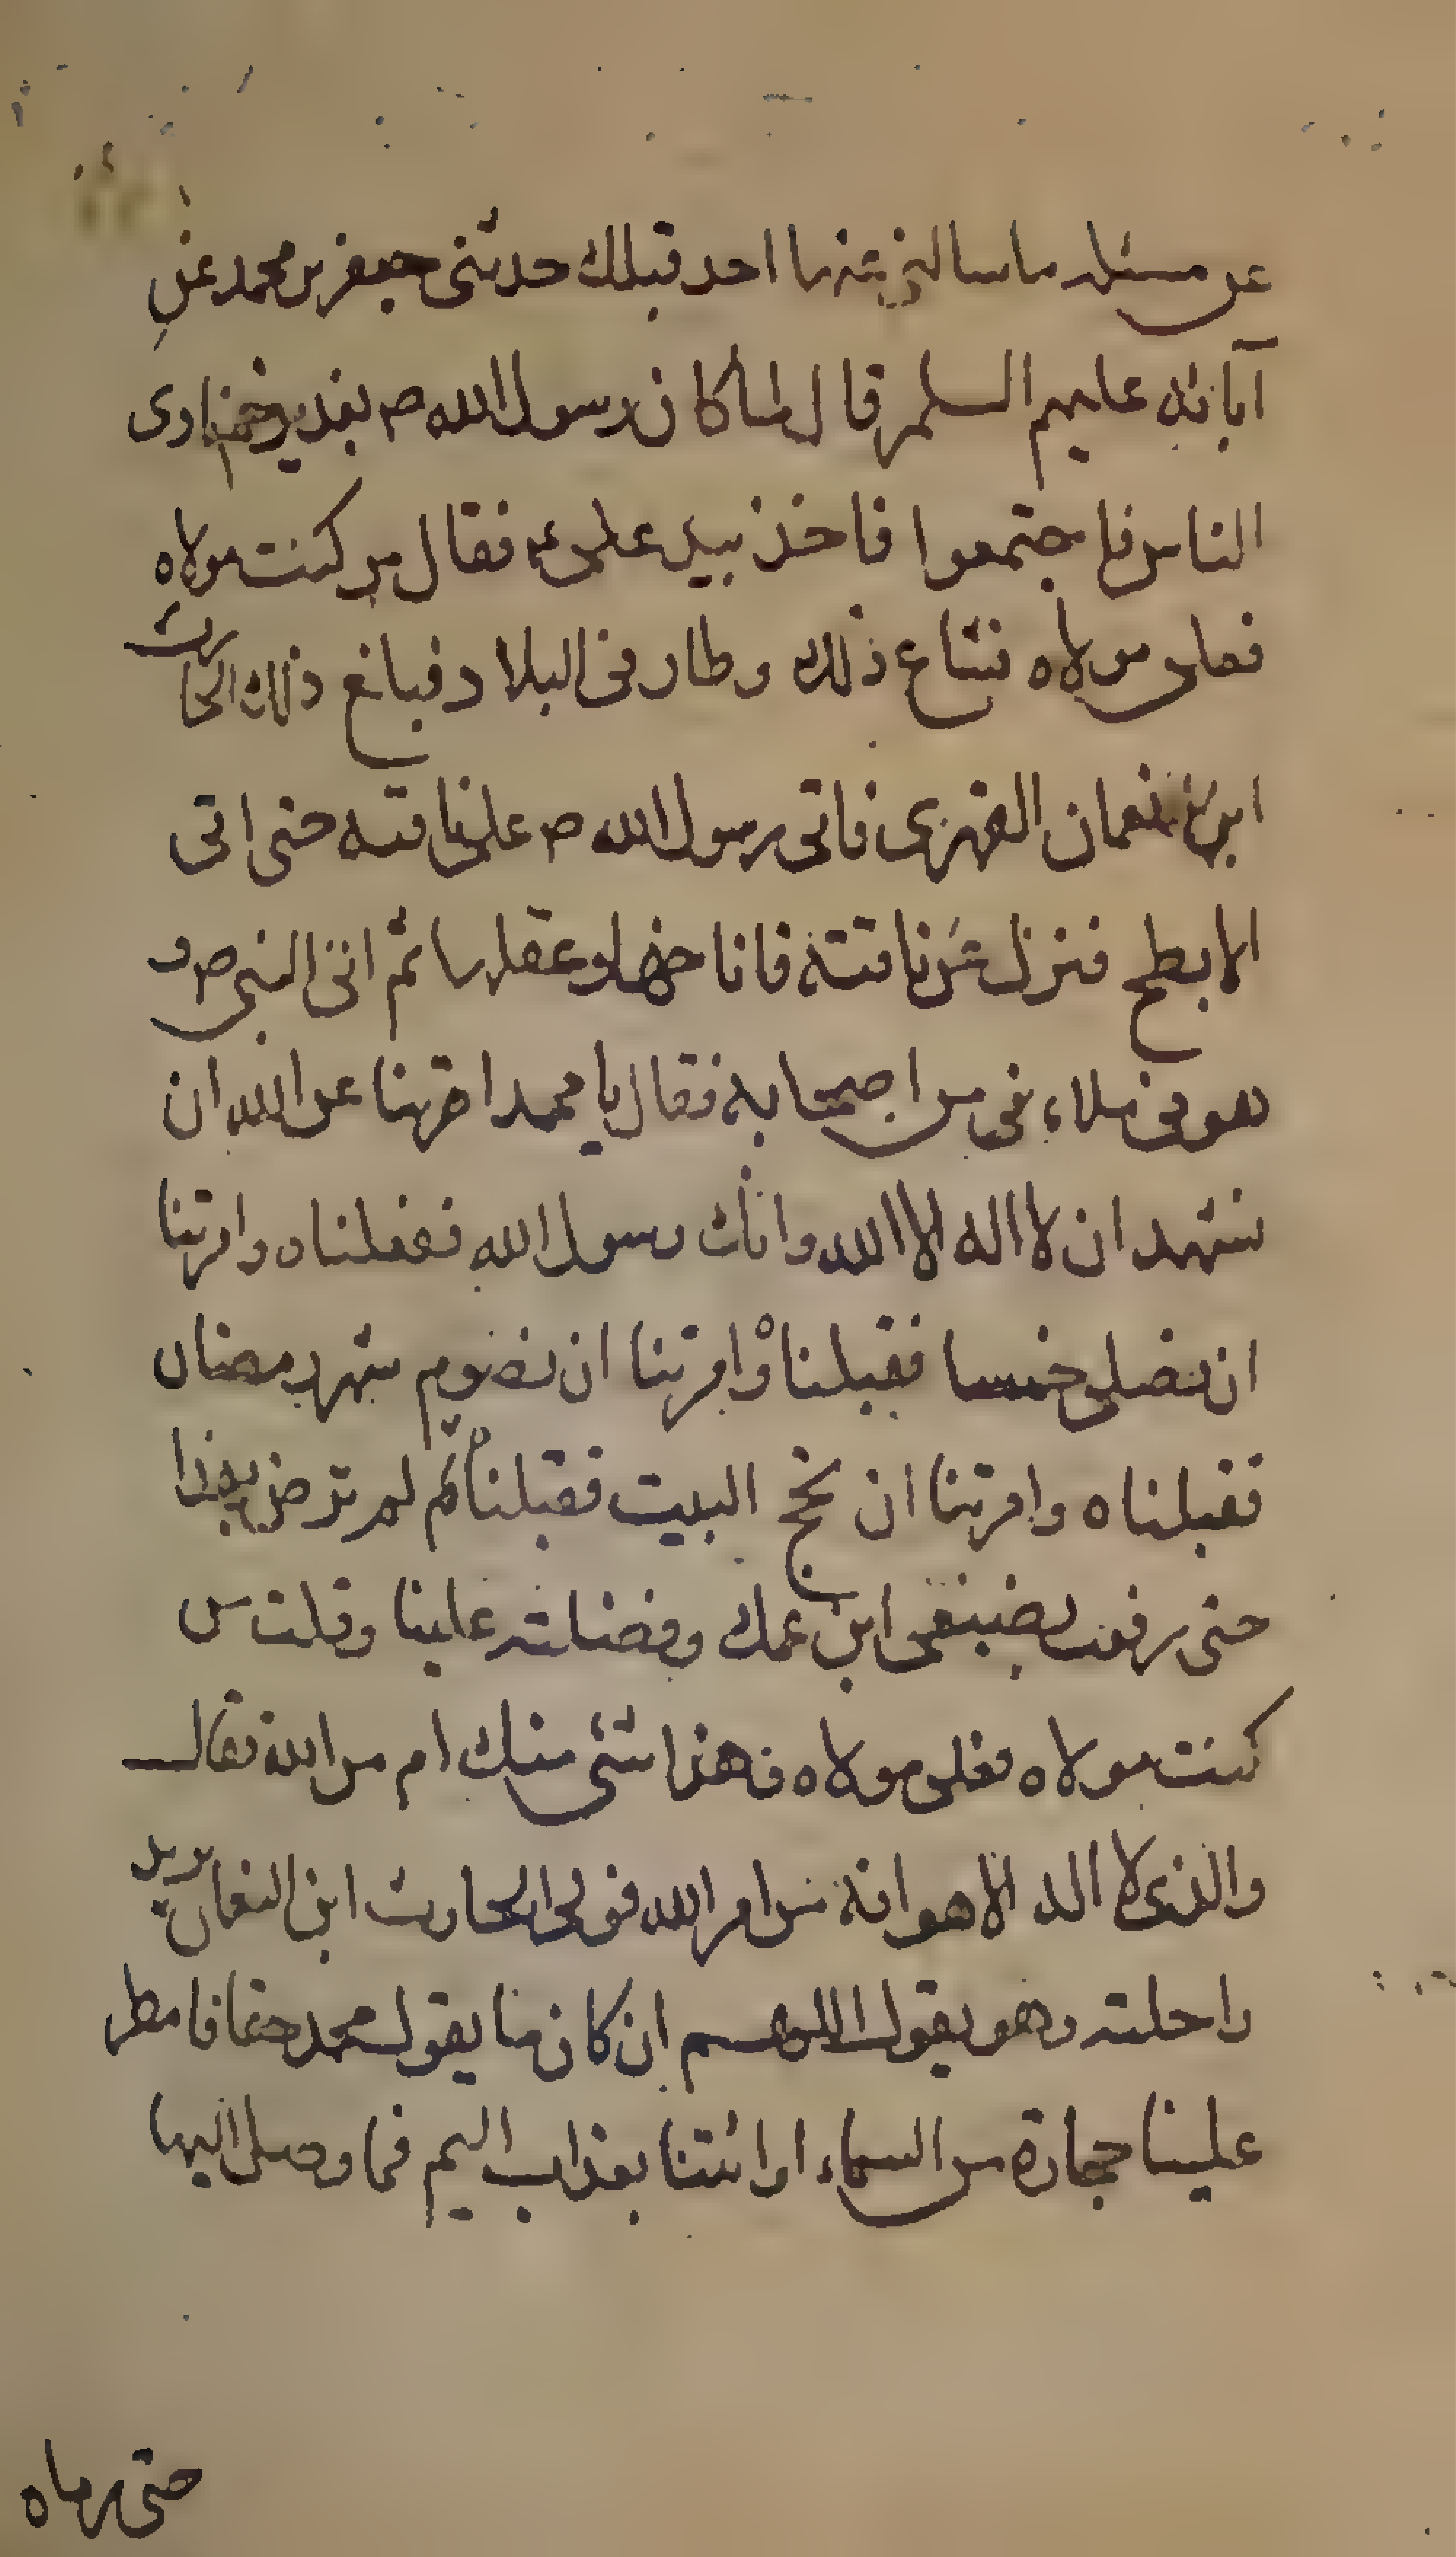 عن مسئله ما سالنى عنها احد قبلك حدثنى جعفر بن محمد عن
آبائه عليهم السلم قال لما كان رسول الله ص بغدير خم نادى
الناس فاجتمعوا فاخذ بيد على ع فقال من كنت مولاه
فعلى مولاه فشاع ذلك وطار فى البلاد فبلغ ذلك الحارث
ابن النعمان الفهرى فاتى رسول الله ص على ناقته حتى اتى
الابطح فنزل عن ناقته فاناخها وعقلها ثم اتى النبى ص و
هو فى ملاء من اصحابه فقال يا محمد امرتنا عن الله ان
نشهد ان لا اله الا الله وانك رسول الله ففعلناه وامرتنا
ان نصلى خمسا فقبلناه وامرتنا ان نصوم شهر رمضان
فقبلناه وامرتنا ان نحج البيت فقبلناه ثم لم ترض بهذا
حتى رفعت بضبعى ابن عمك وفضلته علينا وقلت من
كنت مولاه فعلى مولاه فهذا شئى منك ام من الله فقال
والذى لا اله الا هو انه من امر الله فولى الحارث ابن النعمان يريد
راحلته وهو يقول اللهم ان كان ما يقول محمد حقا فامطر
علينا حجارة من السماء او ائتنا بعذاب اليم فما وصل اليها
حتى رماه